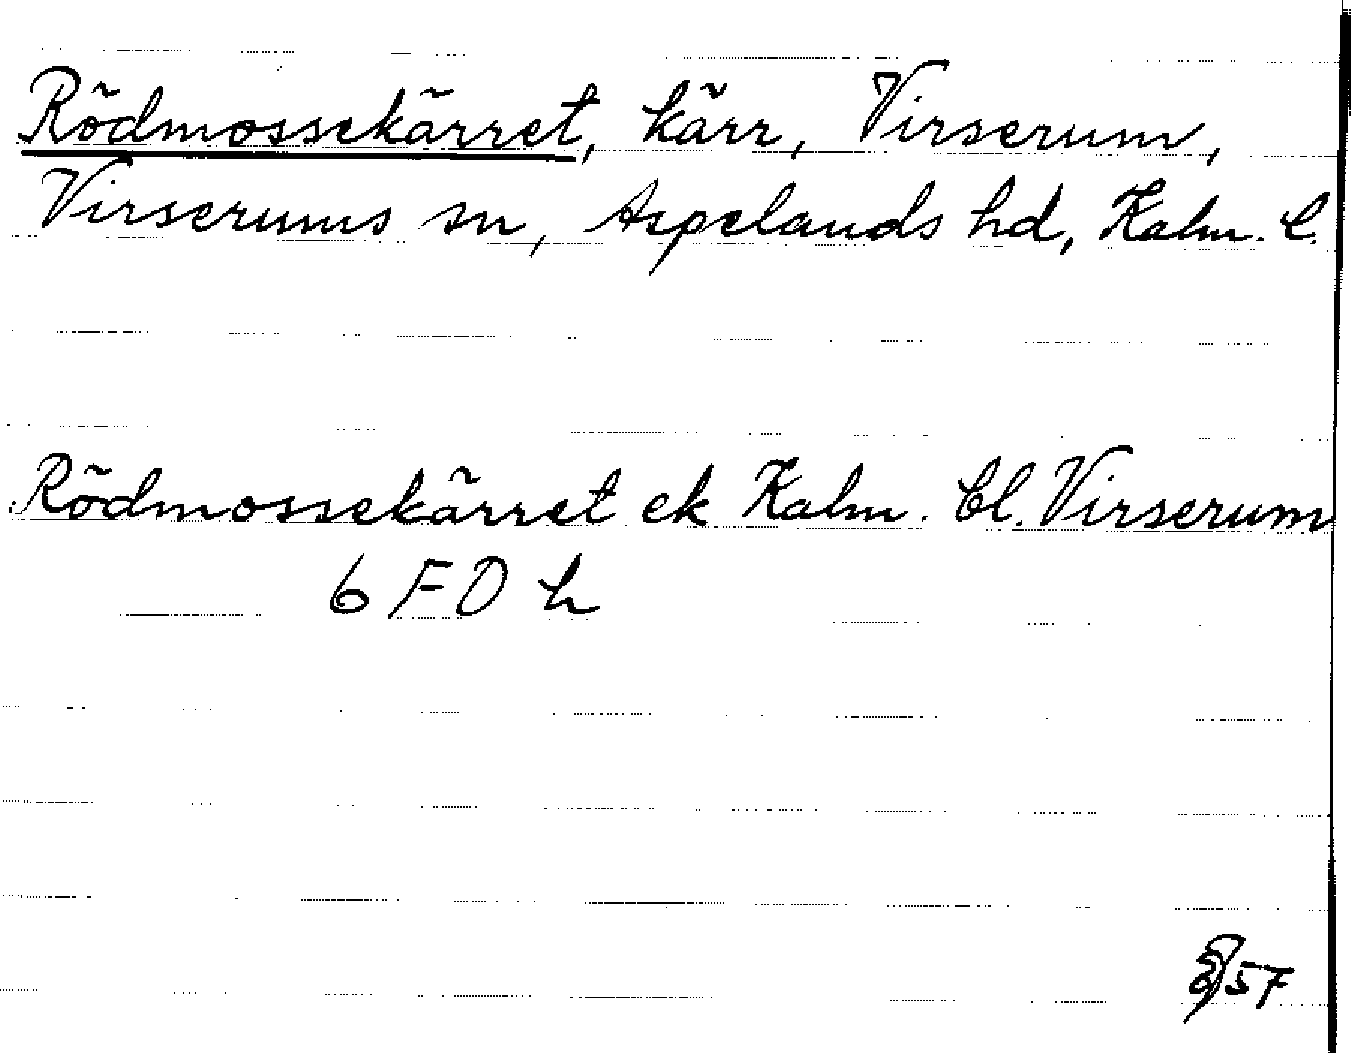 Rödmossekärret, kärr, Virserum,
Virserums sn, Aspelands hd, Kalm. l.
Rödmossekärret ek Kalm. bl. Virserum
6 F 0 h
57